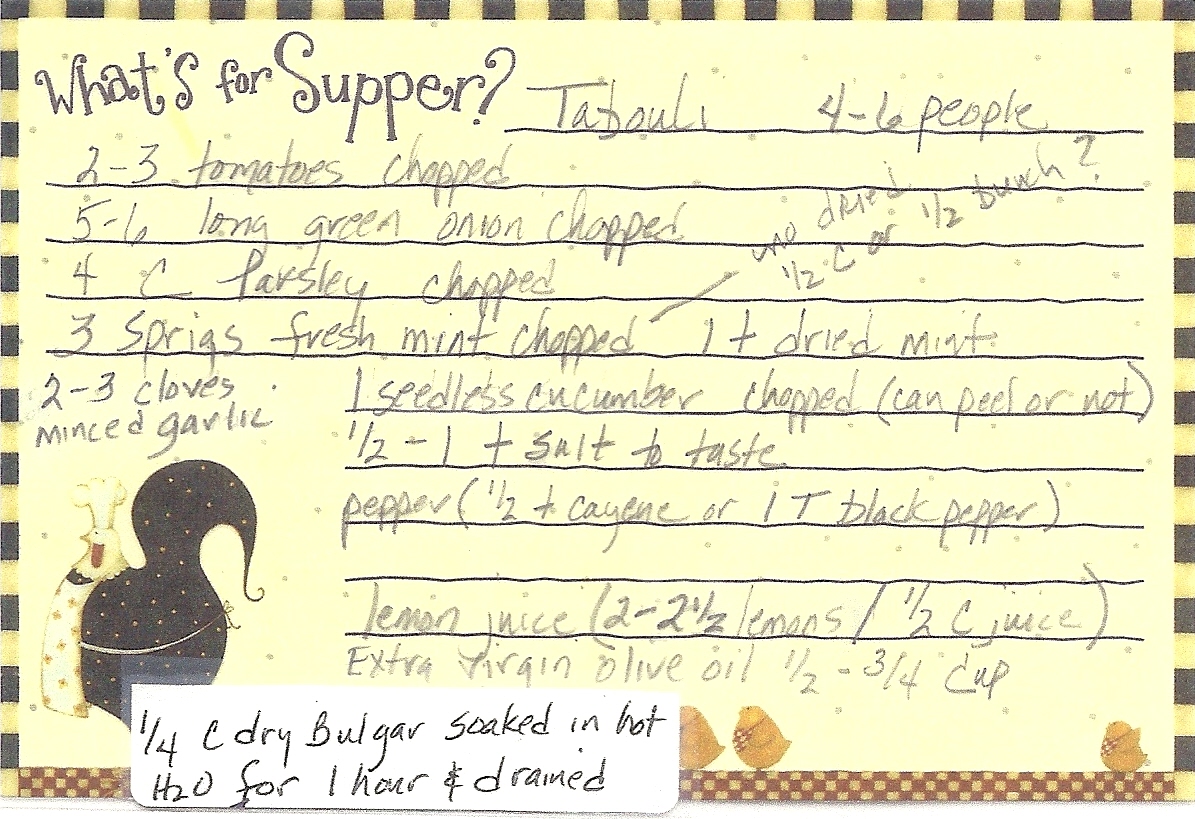 What's for Supper? Tabouli 4-6 people
2-3 tomatoes chopped
5-6 long green onion chopped
4 C Parsley chopped
3 Sprigs fresh mint chopped 1 t dried mint
no dried
1/2 C or 1/2 bunch?
2-3 cloves
minced garlic
1 seedless cucumber chopped (can peel or not)
1/2 - 1 t salt to taste
pepper (1/2 t cayene or 1 T black pepper)
lemon juice (2-2 1/2 lemons / 1/2 C juice)
Extra virgin olive oil 1/2 - 3/4 cup
1/4 C dry Bulgar soaked in hot
H2O for 1 hour & drained